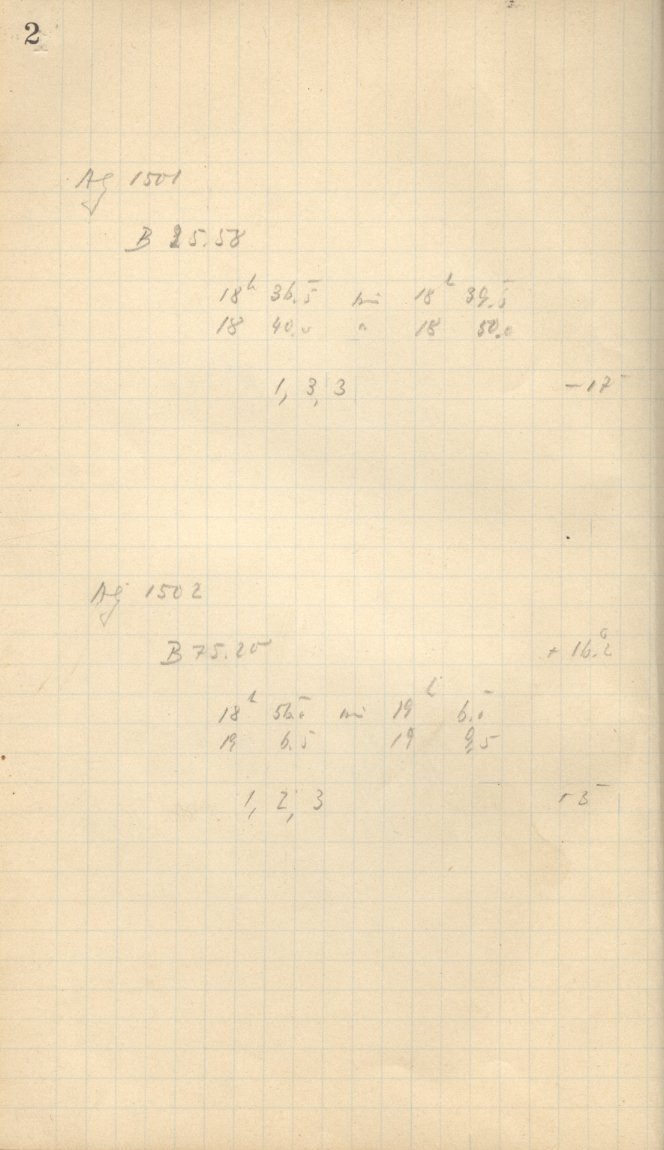 2
Ag 1501
B 25.58
18h 36.5 bis 18h 39.5
18 40.0 " 18 50.0
1, 3, 3 -17
Ag 1502
B 75.20 + 16.2
18h 56.0 bis 19h 6.0
19 6.5 19 9.5
1, 2, 3